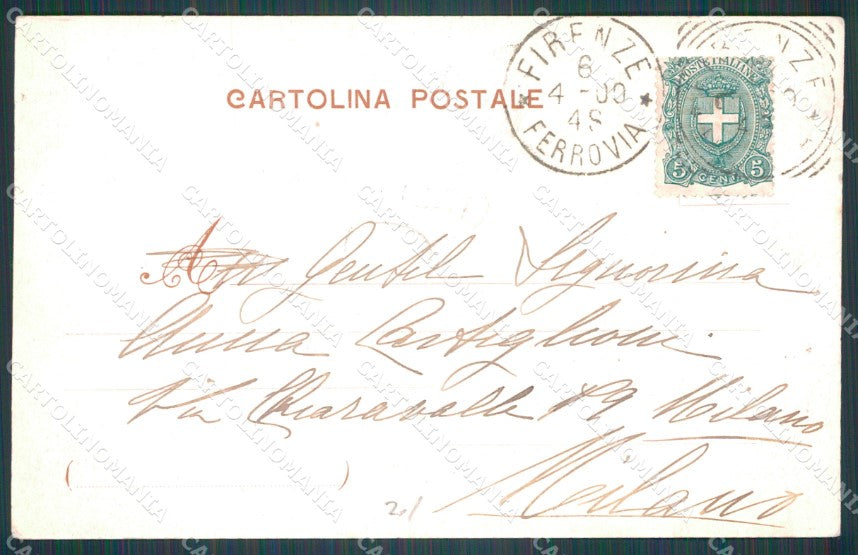 CARTOLINA POSTALE
FIRENZE
6
4-00
4S
FERROVIA
POSTE ITALIANE
5 CENT. 5
FIRENZE
A Gentil Signorina
Anna Castiglioni
Via Chiaravalle 19 Milano
Milano
( )
21
CARTOLINOMANIA